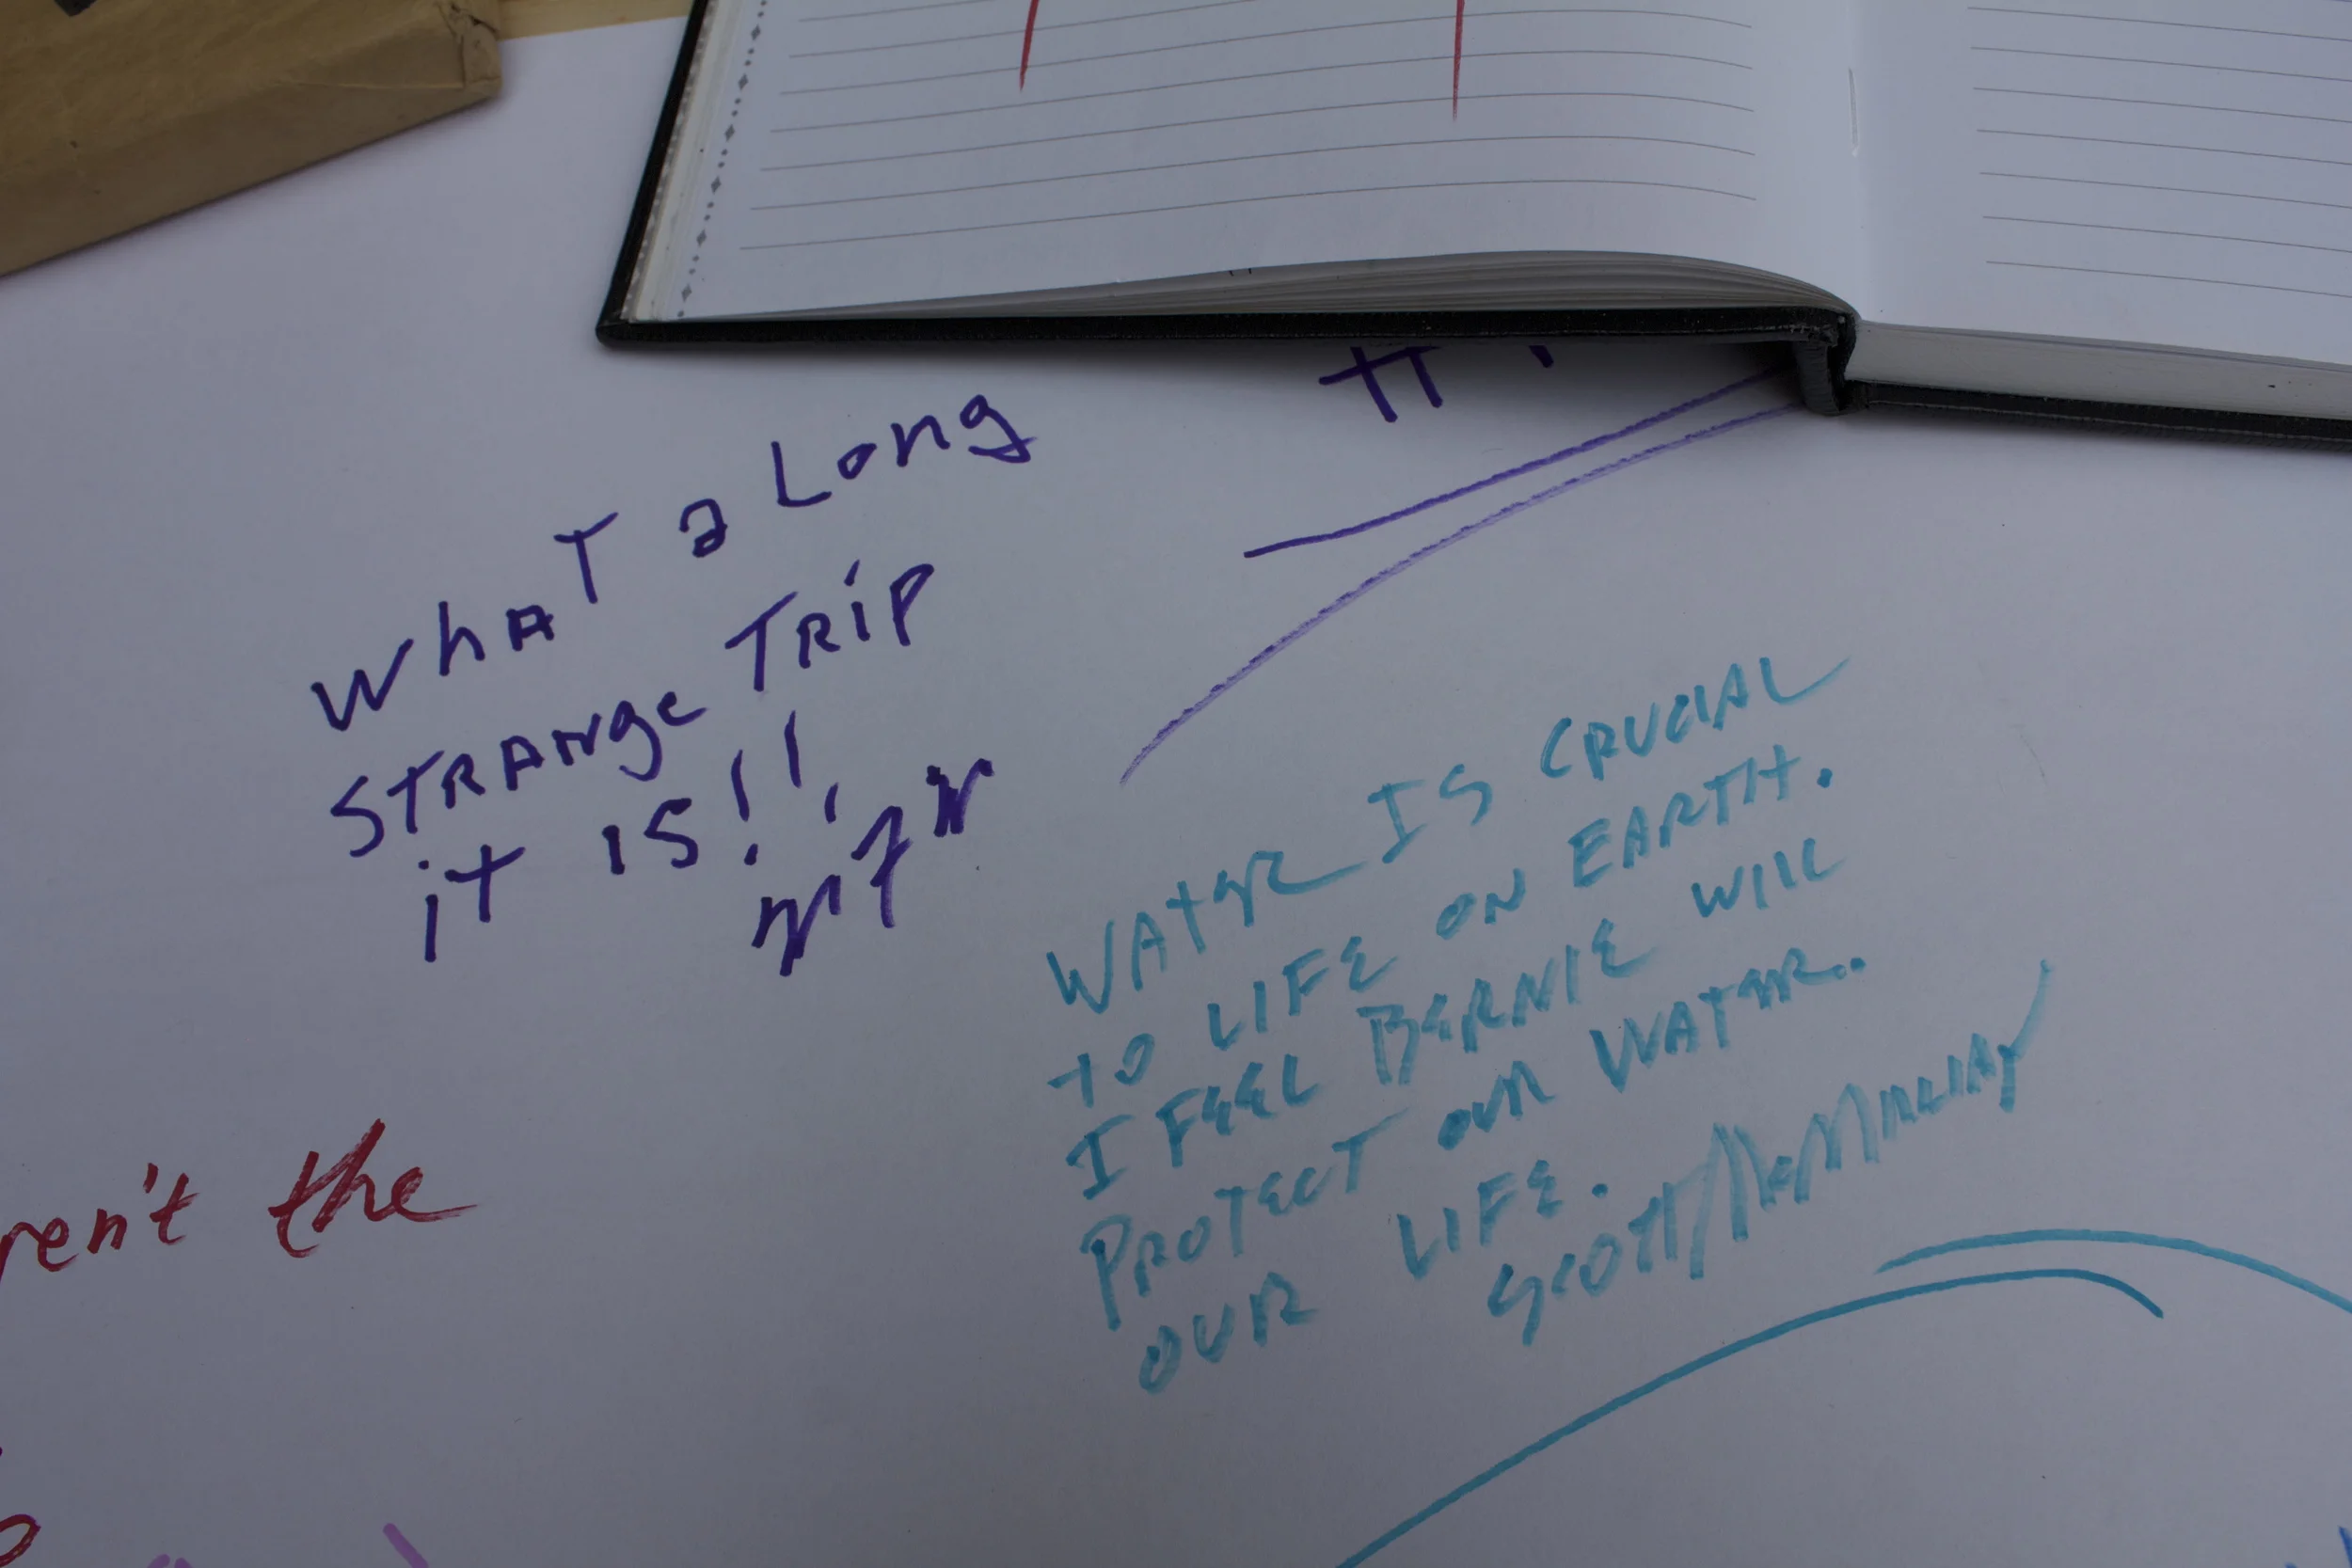 WhAT a Long
STRANge TRiP
iT iS!!
WATER IS CRUCIAL
TO LIFE ON EARTH.
I FEEL BERNIE WILL
PROTECT OUR WATER.
OUR LIFE.
SCOTT
ren't the